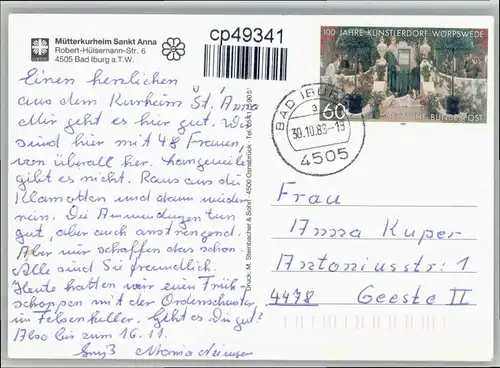 Mütterkurheim Sankt Anna
Robert-Hülsemann-Str. 6
4505 Bad Iburg a.T.W.
cp49341
100 JAHRE KÜNSTLERDORF WORPSWEDE
60
DEUTSCHE BUNDESPOST
BAD IBURG
a
30.10.89-15
4505
Einen herzlichen
aus dem Kurheim St. Anna
Mir geht es hier gut. Wir
sind hier mit 48 Frauen,
von überall her. Langeweile
gibt es nicht. Raus aus die
Klamotten und dann wieder
rein. Die Anwendungen tun
gut, aber auch anstrengend.
Aber wir schaffen das schon.
Alle sind Sie freundlich.
Heute hatten wir ein Früh-
schoppen mit der Ordenschwester,
im Felsenkeller. Geht es Dir gut?
Also bis zum 16.11.
Gruß Maria
Druck: M. Steinbacher & Sohn · 4500 Osnabrück
Frau
Anna Kuper
Antoniusstr. 1
4478 Geeste II